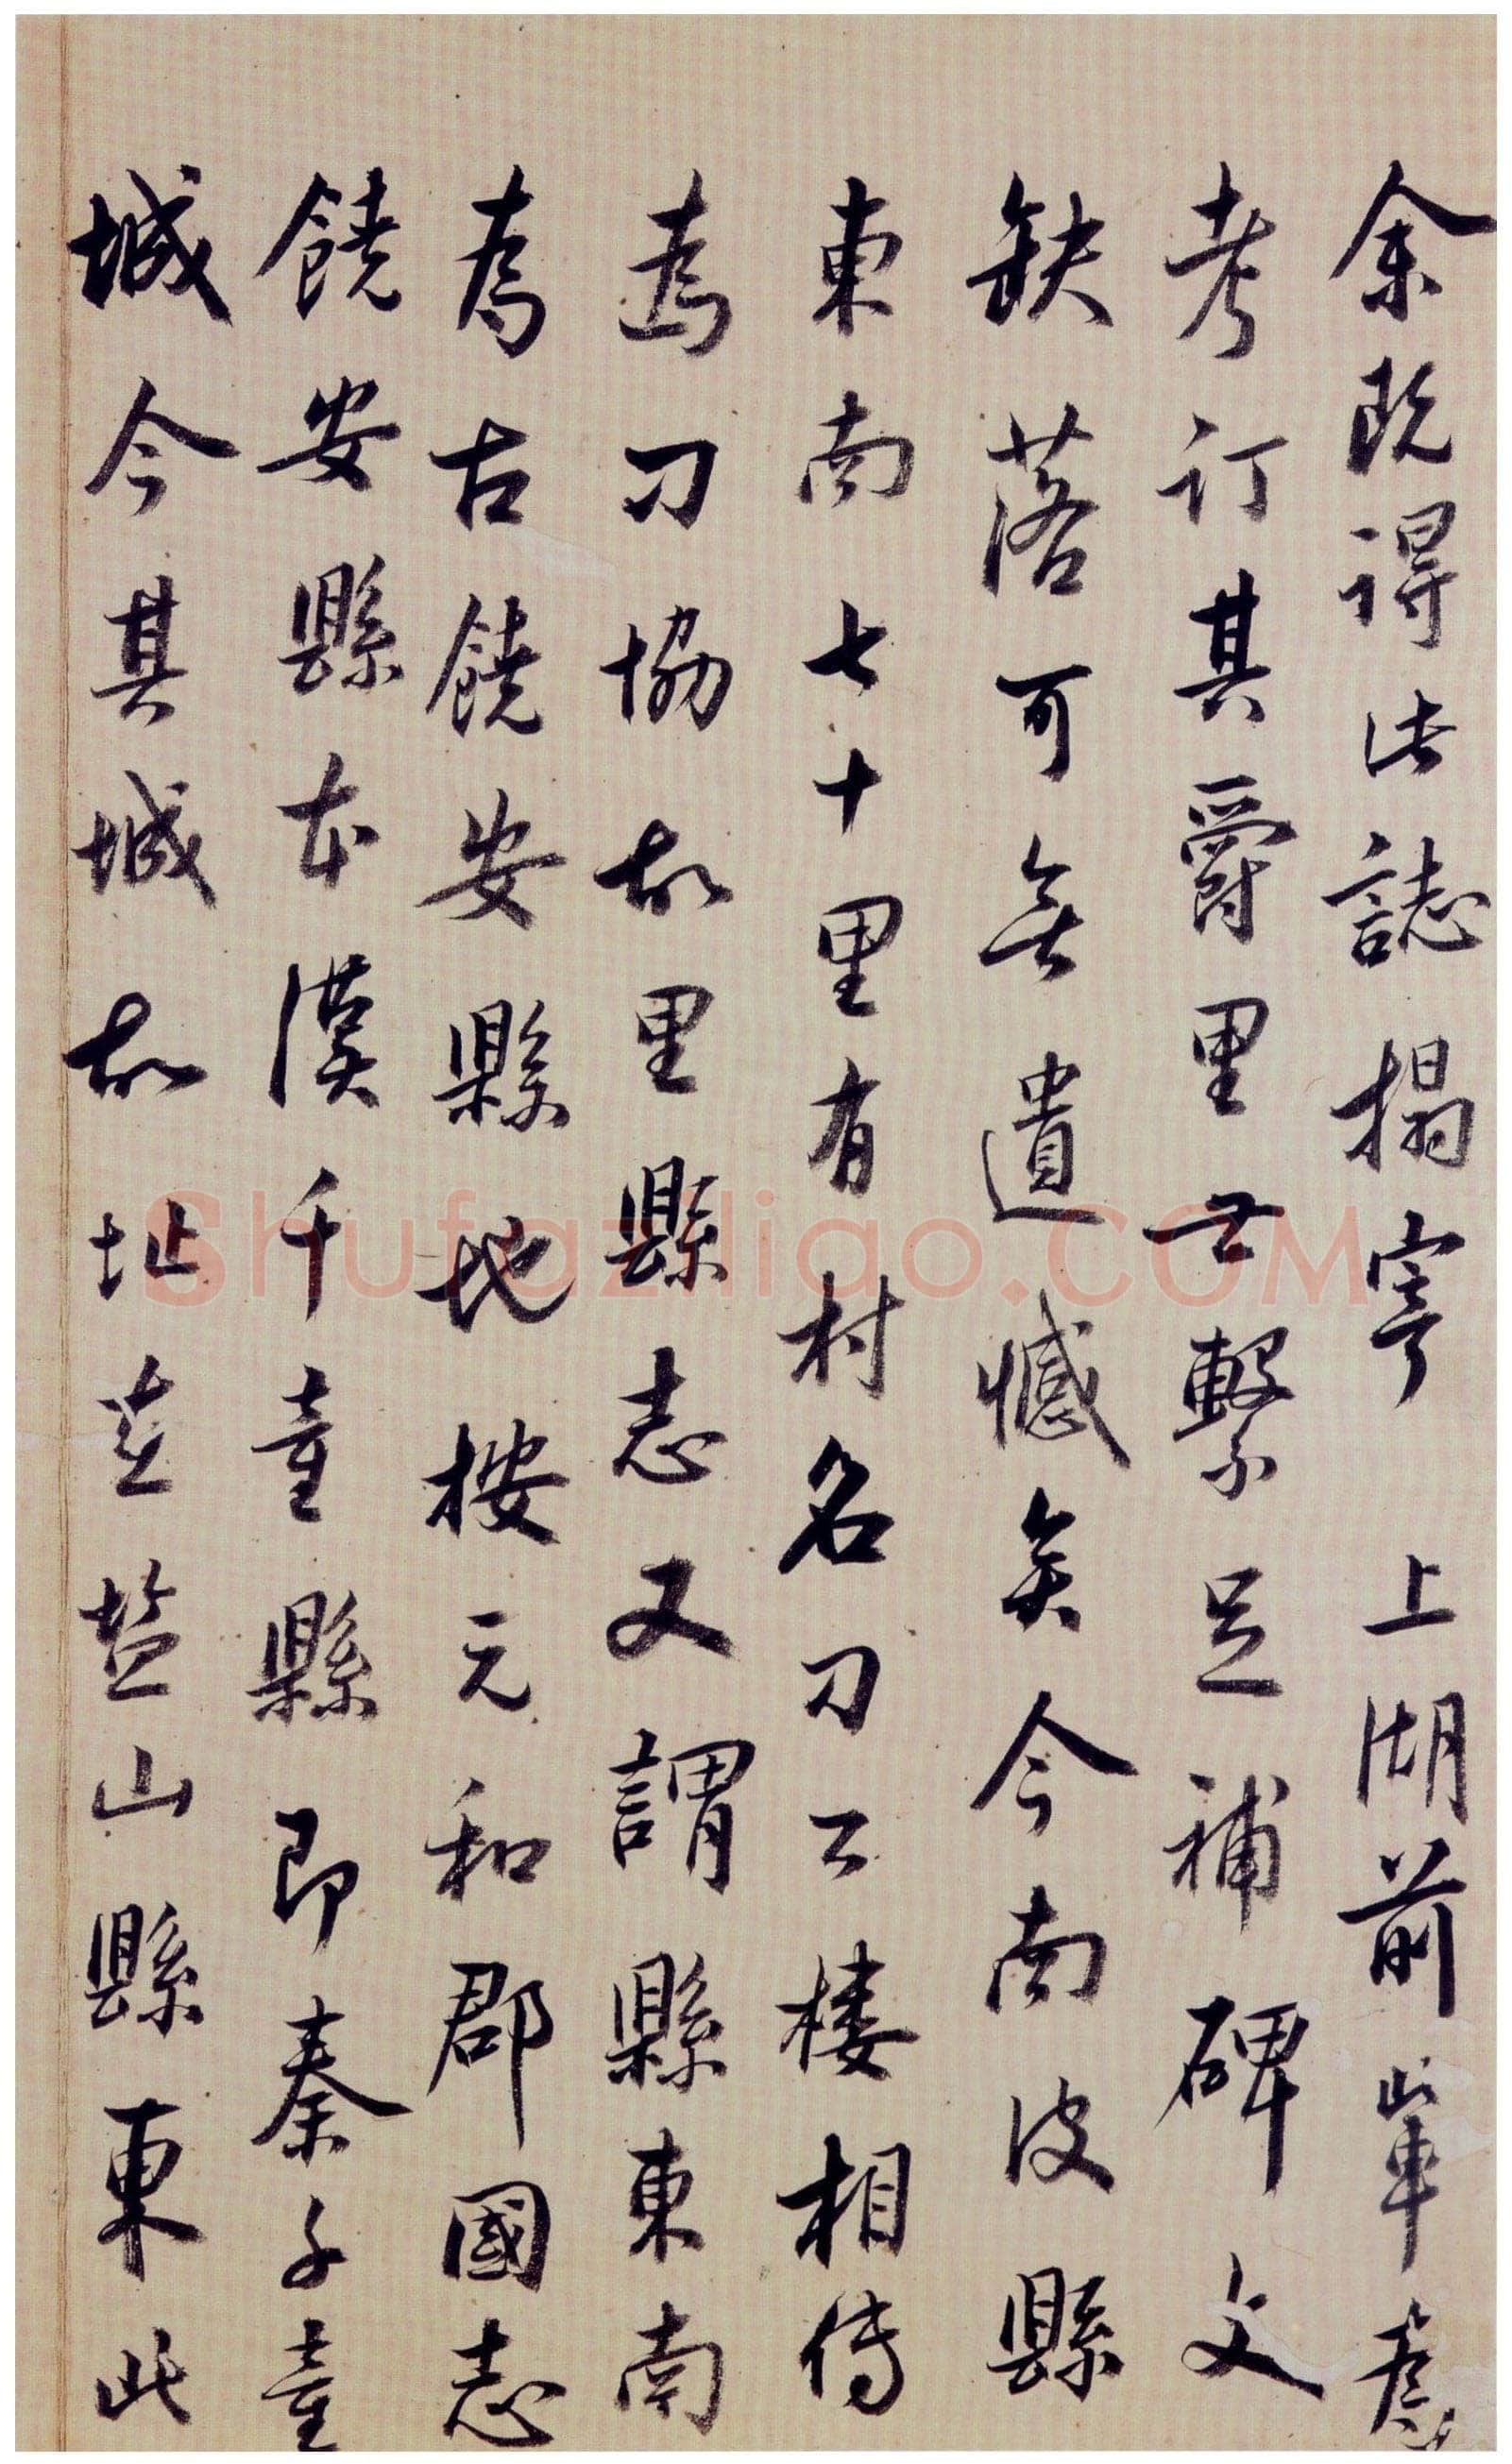 余既得此誌搨寄 上湖前輩爲
考訂其爵里世繫足補碑文
缺落可無遺憾矣今南皮縣
東南七十里有村名刁公楼相傳
爲刁協故里縣志又謂縣東南
爲古饒安縣地按元和郡國志
饒安縣本漢千童縣即秦千童
城今其城故址在盐山縣東此
Shufaziliao.COM